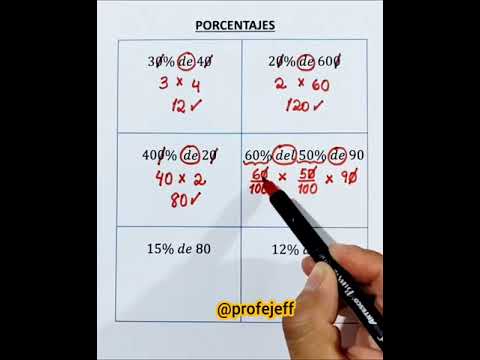 PORCENTAJES
30% de 40
3 × 4
12 ✓
20% de 600
2 × 60
120 ✓
400% de 20
40 × 2
80 ✓
60% del 50% de 90
60/100 × 50/100 × 90
15% de 80
12% d
@profejeff